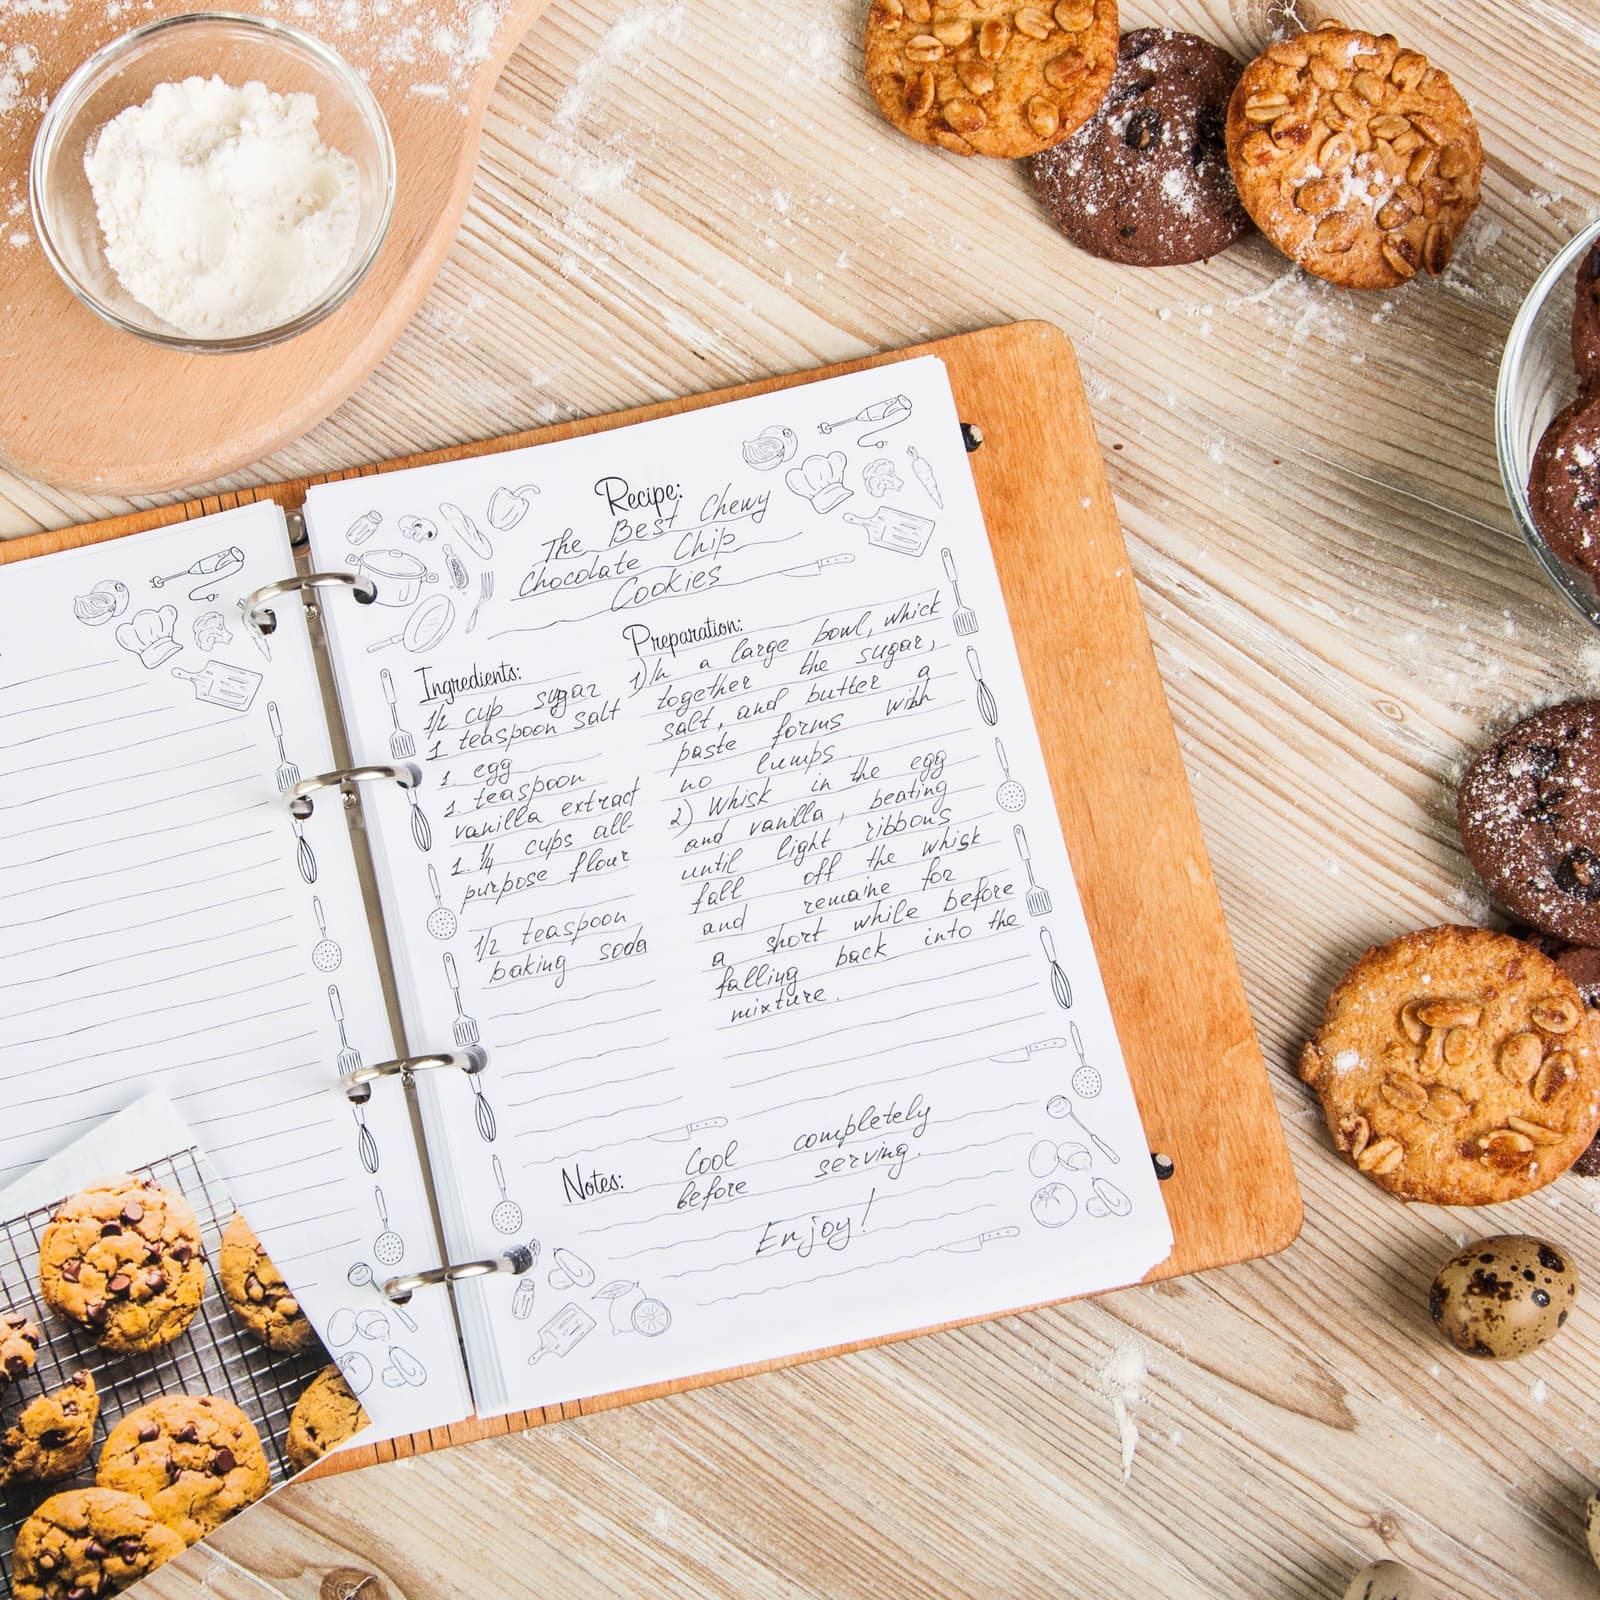 Recipe:
The Best Chewy
Chocolate Chip
Cookies
Ingredients:
1/2 cup sugar
1 teaspoon salt
1 egg
1 teaspoon
vanilla extract
1 1/4 cups all-
purpose flour
1/2 teaspoon
baking soda
Preparation:
1) In a large bowl, whick
together the sugar,
salt, and butter a
paste forms with
no lumps.
2) Whisk in the egg
and vanilla, beating
until light ribbons
fall off the whisk
and remaine for
a short while before
falling back into the
mixture.
Notes: Cool completely
before serving.
Enjoy!